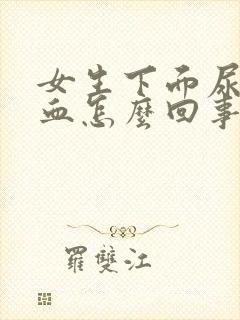 女生下而尿
血怎麼回事
羅雙江